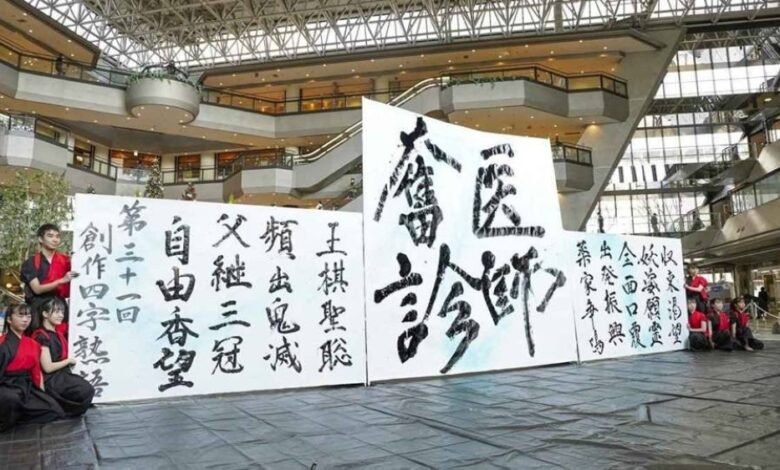 収束渇望
妖姿願霊
全面口覆
出発振興
医師
奮診
王棋聖聡
頻出鬼滅
父継三冠
自由香望
第三十一回
創作四字熟語